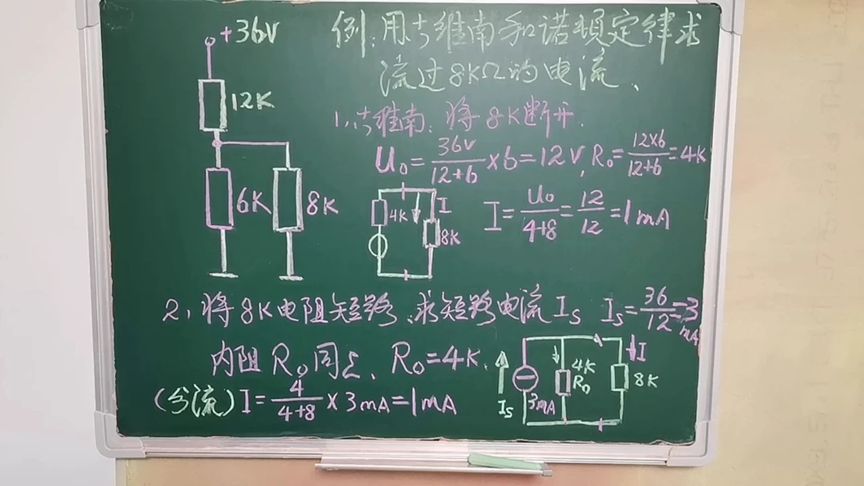 +36V
例:用戴维南和诺顿定律求
流过8KΩ的电流、
12K
6K
8K
1、戴维南:将8K断开.
U₀=36V/12+6×6=12V, R₀=12×6/12+6=4K
4K
I
8K
I=U₀/4+8=12/12=1mA
2、将8K电阻短路、求短路电流Is Is=36/12=3mA
内阻R₀同上、R₀=4K.
(分流)I=4/4+8×3mA=1mA
Is
3mA
4K
R₀
I
8K